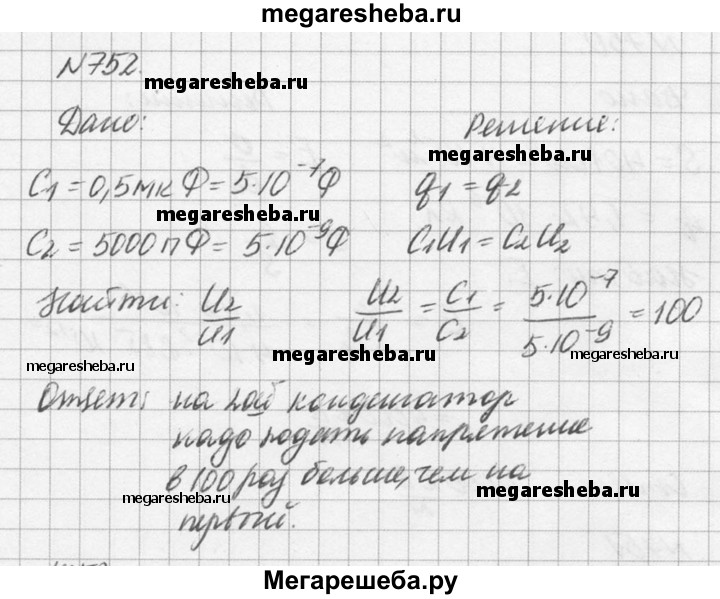 megaresheba.ru
N752.
megaresheba.ru
Дано:
Решение:
megaresheba.ru
C1 = 0,5 мкФ = 5·10^-7 Ф
q1 = q2
megaresheba.ru
C2 = 5000 пФ = 5·10^-9 Ф
C1U1 = C2U2
Найти: U2/U1
U2/U1 = C1/C2 = 5·10^-7/5·10^-9 = 100
megaresheba.ru
megaresheba.ru
megaresheba.ru
Ответ: на 2ой конденсатор
надо подать напряжение
в 100 раз больше, чем на
megaresheba.ru
megaresheba.ru
первый.
Мегарешеба.ру